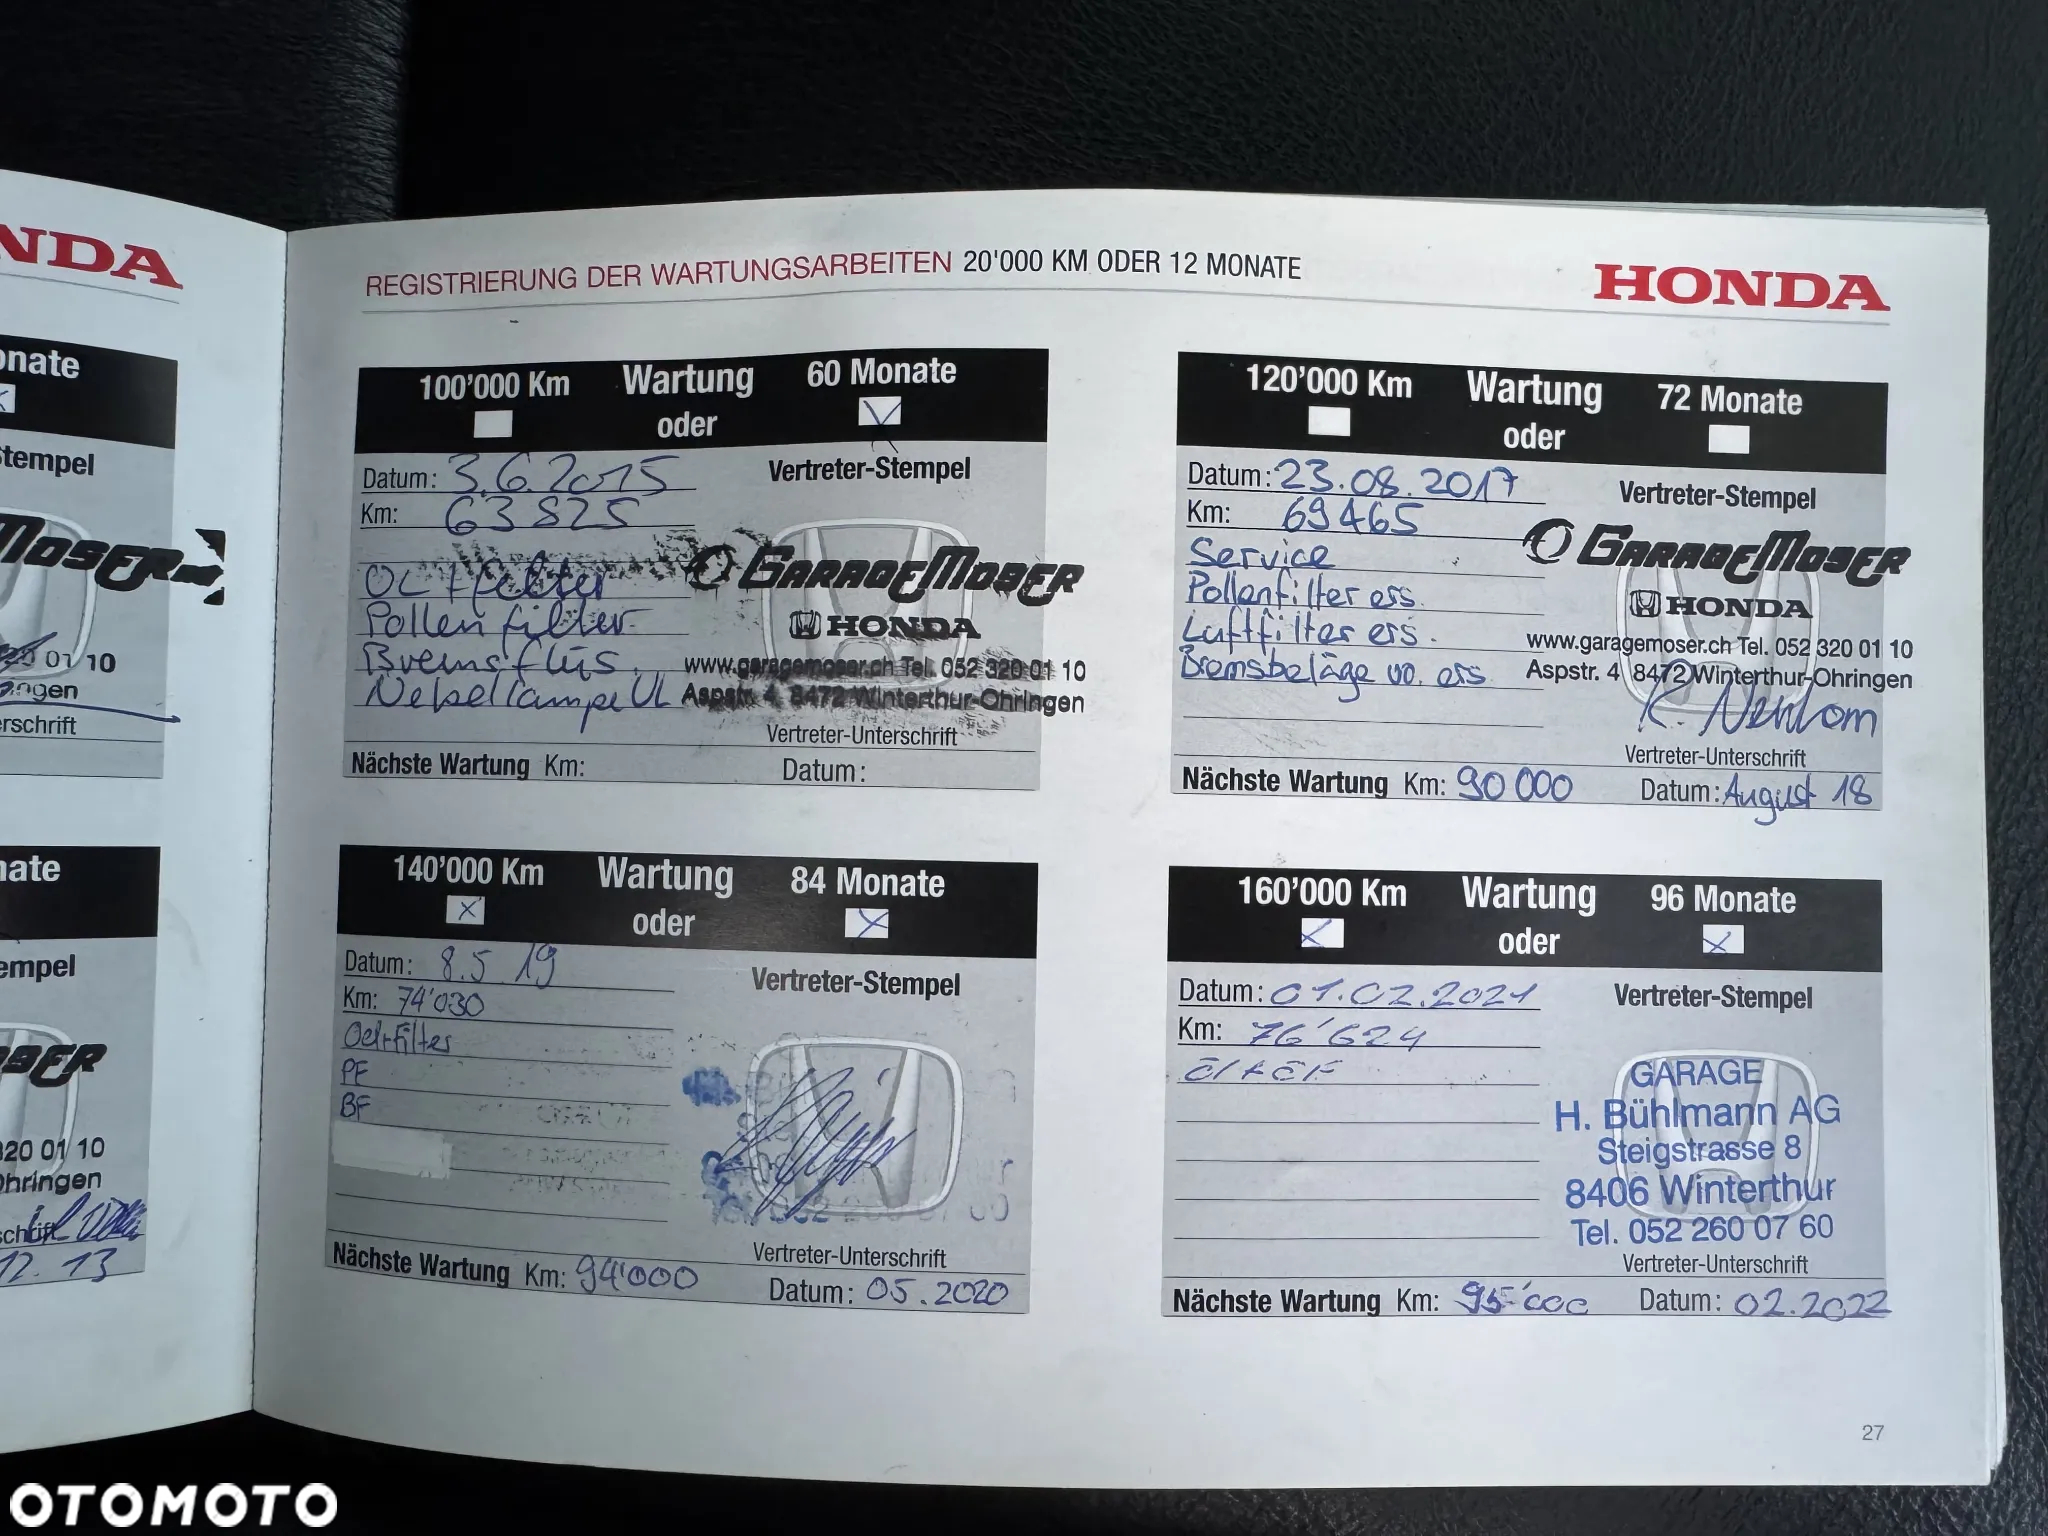 NDA
onate
Stempel
MOSER
320 01 10
ingen
erschrift
nate
empel
OSER
320 01 10
Ohringen
schrift
12.13
REGISTRIERUNG DER WARTUNGSARBEITEN 20'000 KM ODER 12 MONATE
HONDA
100'000 Km Wartung oder 60 Monate
Datum: 3.6.2015
Vertreter-Stempel
Km: 63825
Oel+filter
Pollenfilter
Bremsflüs.
Nebellampe VL
GARAGE MOSER
HONDA
www.garagemoser.ch Tel. 052 320 01 10
Aspstr. 4 8472 Winterthur-Ohringen
Vertreter-Unterschrift
Nächste Wartung Km: Datum:
120'000 Km Wartung oder 72 Monate
Datum: 23.08.2017
Vertreter-Stempel
Km: 69465
Service
Pollenfilter ers.
Luftfilter ers.
Bremsbeläge vo. ers
GARAGE MOSER
HONDA
www.garagemoser.ch Tel. 052 320 01 10
Aspstr. 4 8472 Winterthur-Ohringen
Vertreter-Unterschrift
Nächste Wartung Km: 90 000 Datum: August 18
140'000 Km Wartung oder 84 Monate
Datum: 8.5 19
Vertreter-Stempel
Km: 74'030
Oel+Filter
PF
BF
Vertreter-Unterschrift
Nächste Wartung Km: 94'000 Datum: 05.2020
160'000 Km Wartung oder 96 Monate
Datum: 01.02.2021
Vertreter-Stempel
Km: 76'624
Öl + ÖF
GARAGE
H. Bühlmann AG
Steigstrasse 8
8406 Winterthur
Tel. 052 260 07 60
Vertreter-Unterschrift
Nächste Wartung Km: 95'000 Datum: 02.2022
27
OTOMOTO